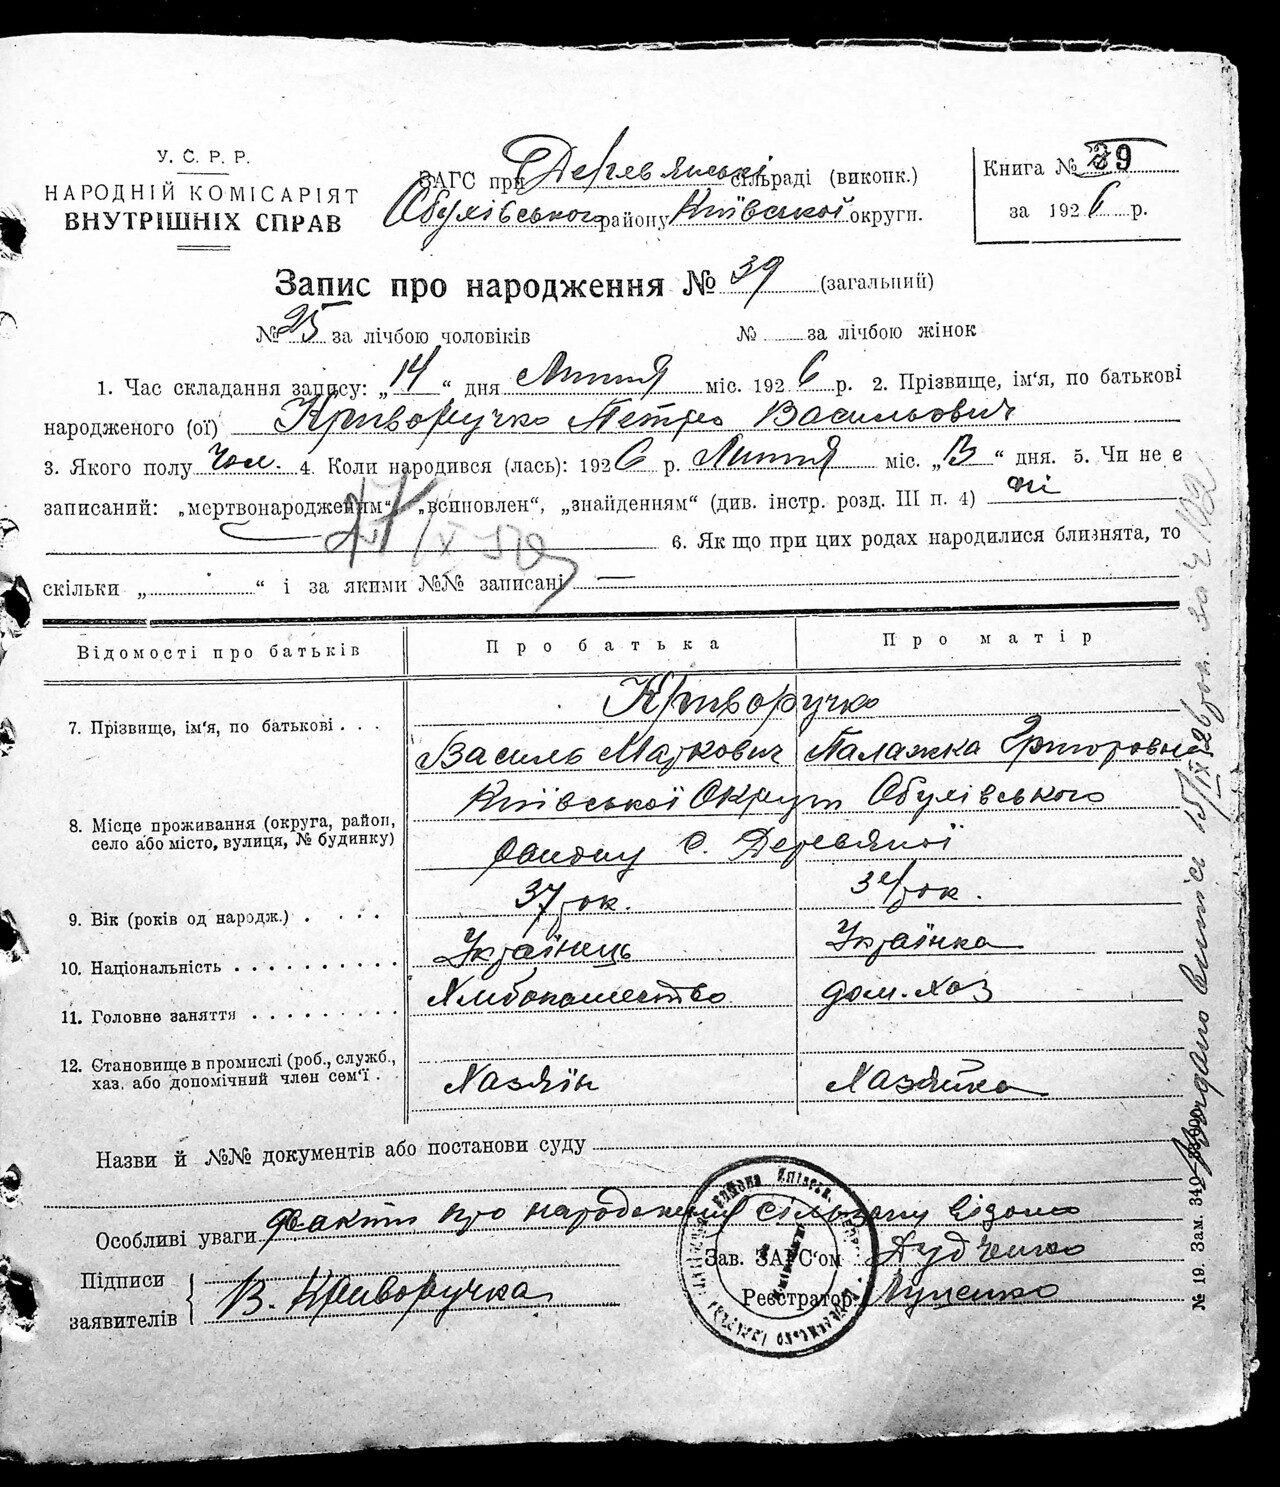 У. С. Р. Р.
НАРОДНІЙ КОМІСАРІЯТ
ВНУТРІШНІХ СПРАВ
ЗАГС при Деревянські сільраді (виконк.)
Обухівського району Київської округи.
Книга № 39
за 1926 р.
Запис про народження № 39 (загальний)
№ 25 за лічбою чоловіків № за лічбою жінок
1. Час складання запису: „14“ дня Липня міс. 1926 р. 2. Прізвище, ім'я, по батькові
народженого (ої) Криворучко Петро Васильович
3. Якого полу Чол. 4. Коли народився (лась): 1926 р. Липня міс. „13“ дня. 5. Чи не є
записаний: „мертвонародженим“, „всиновлен“, „знайденням“ (див. інстр. розд. III п. 4) ні
6. Якщо при цих родах народилися близнята, то
скільки „ “ і за якими №№ записані —
Відомості про батьків Про батька Про матір
Криворучко
7. Прізвище, ім'я, по батькові . . .
Василь Маркович Палажка Григоровна
Київської Округи Обухівського
8. Місце проживання (округа, район,
село або місто, вулиця, № будинку)
району С. Деревяної
9. Вік (років од народж.) . . . . 37 рок. рок.
10. Національність . . . . . . . . . . Українець Українка
11. Головне заняття . . . . . . . . . Хлібопашество дом. хаз
12. Становище в промислі (роб., служб.,
хаз. або допомічний член сем'ї . Хазяїн Хазяйка
Назви й №№ документів або постанови суду
Особливі уваги факт про народження сільраду відомо
Підписи
заявителів
В. Криворучка
Зав. ЗАГС'ом Дудченко
Реєстратор Луценко
№ 19. Зам. 340—